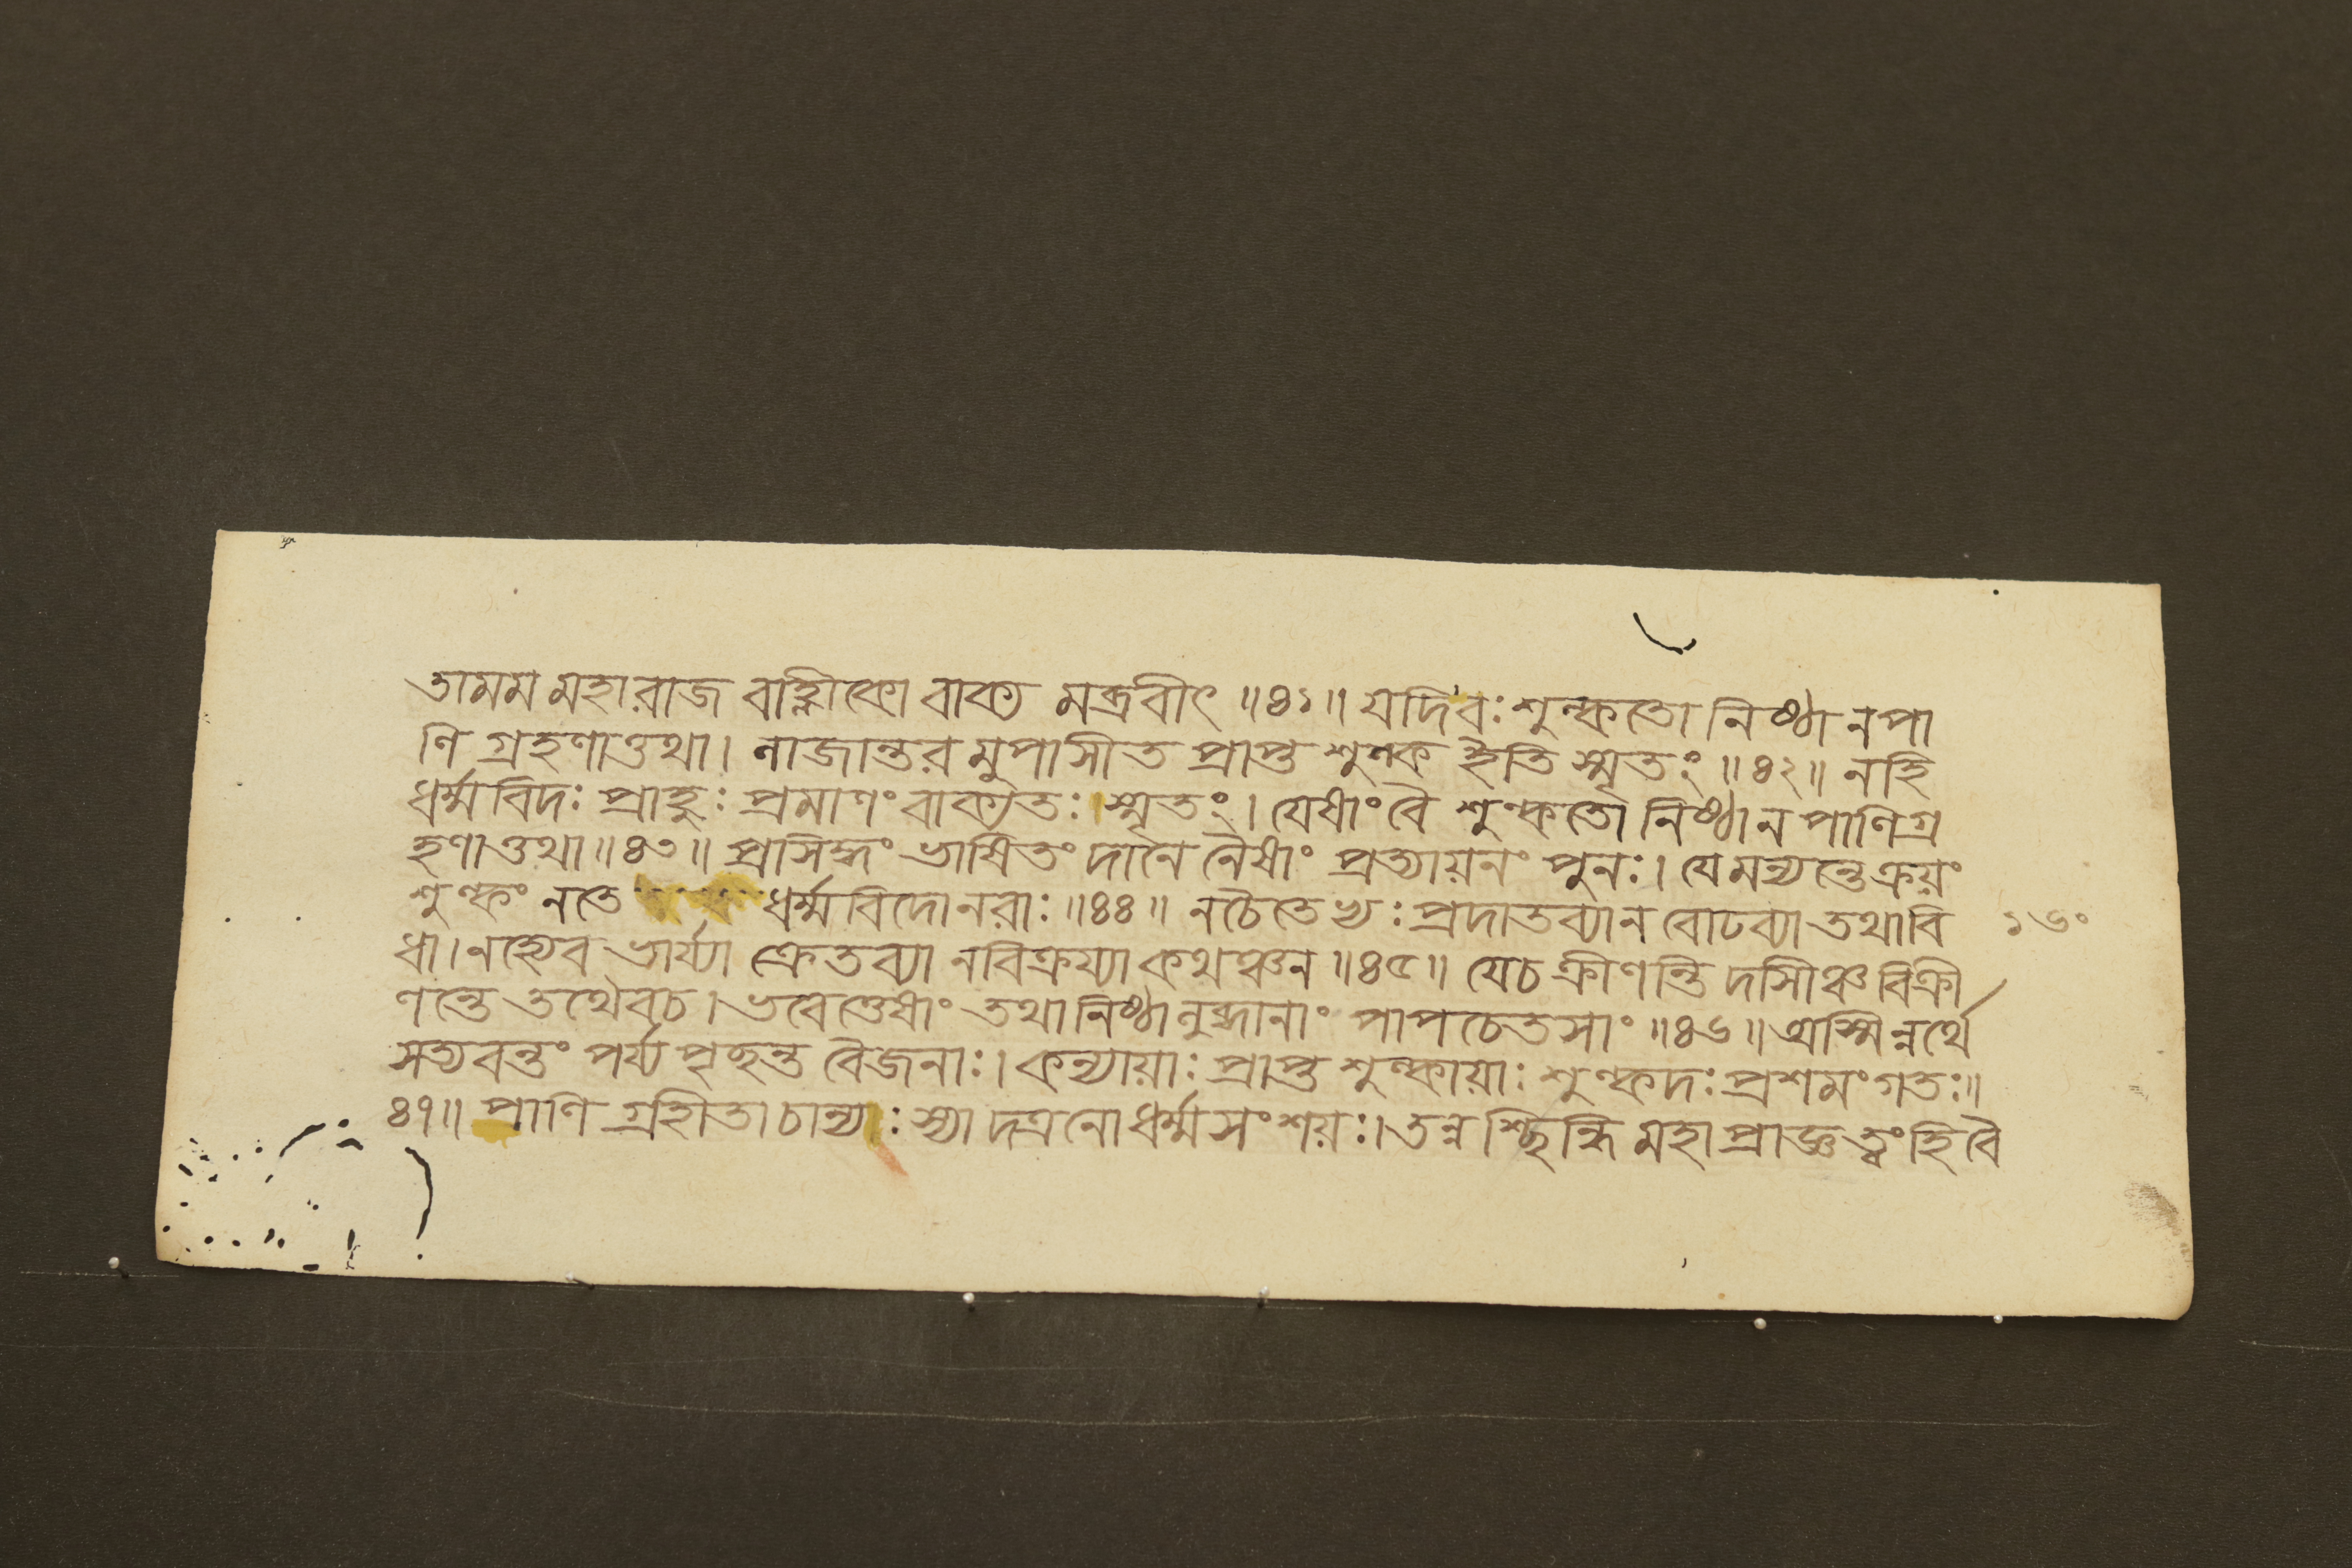 তামমমহারাজ বাহ্লীকো বাক্য মব্রবীৎ ॥৪১॥ যদিবঃ শুল্কতো নিষ্ঠা নপা
ণি গ্রহণাত্তথা। নাজান্তর মুপাসীত প্রাপ্ত শুল্ক ইতি স্মৃতং ॥৪২॥ নহি
ধর্ম্মবিদঃ প্রাহুঃ প্রমাণং বাক্যতঃ স্মৃতং। যেষাংবৈ শুল্কতো নিষ্ঠান পাণিগ্র
হণাত্তথা॥৪৩॥ প্রসিদ্ধং ভাষিতং দানে নৈষাং প্রত্যায়নং পুনঃ। যেমন্যন্তেক্রয়ং
শুল্কং নতে ধর্ম্মবিদোনরাঃ॥৪৪॥ নচৈতেভ্যঃ প্রদাতব্যান বোঢব্যা তথাবি
ধা।নহ্যেব ভার্য্যা ক্রেতব্যা নবিক্রয্যা কথঞ্চন॥৪৫॥ যেচ ক্রীণন্তি দাসীঞ্চ বিক্রী
ণন্তে তথৈবচ।ভবেত্তেষাং তথানিষ্ঠালুব্ধানাং পাপচেতসাং॥৪৬॥অস্মিন্নর্থে
সত্যবন্তং পর্য্যপৃচ্ছন্ত বৈজনাঃ।কন্যায়াঃ প্রাপ্ত শুল্কায়াঃ শুল্কদঃ প্রশমংগতঃ॥
৪৭॥ পাণি গ্রহীতা চান্যঃ স্যা দত্রনোধর্ম্মসংশয়ঃ।তন্ন শ্ছিন্ধি মহাপ্রাজ্ঞ ত্বংহিবৈ
১৬০